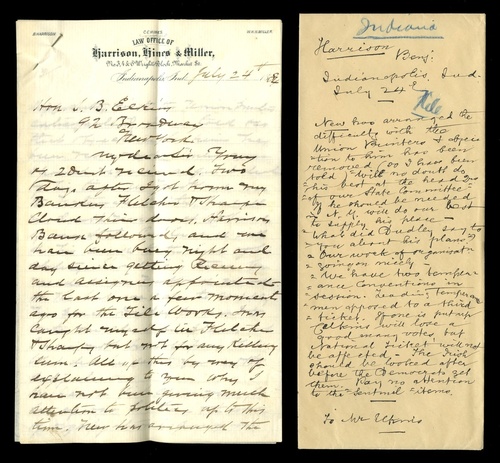 LAW OFFICE OF
Harrison, Hines & Miller,
Indianapolis, Ind. July 24th
Hon. S. B. Elkins
92 Broadway
New York
My dear Sir Yours
of 22nd received. Two
days after I got home my
Bankers Fletcher & Sharpe
closed their doors, Harrison
Bank followed, and we
have been busy night and
day since getting Receiver
and assignee appointed
the last one a few moments
ago for the Tile Works. I was
caught myself in Fletcher
& Sharpe but not for any
sum. All this by way of
explaining to you why I
have not been giving much
attention to politics up to this
time. New has arranged the
Indiana
Harrison
Benj.
Indianapolis, Ind.
July 24
File
New has arranged the
difficulty with the
Union Painters & opposi
tion to him has been
removed (so I have been
told) Will no doubt do
his best at the head
of our State Committee
If he should be needed
in N.Y. will do our best
to supply his place -
What did Dudley say to
you about his plans?
Our work of organizatn
goes on nicely -
We have two temper
ance Conventions in
session - men
opposed to a third
ticket. If one is put up
will lose a
good many votes but
National Ticket will not
be affected - The Irish
should be looked after
before the Democrats get
them. Pay no attention
to the Sentinel items.
To Mr Elkins